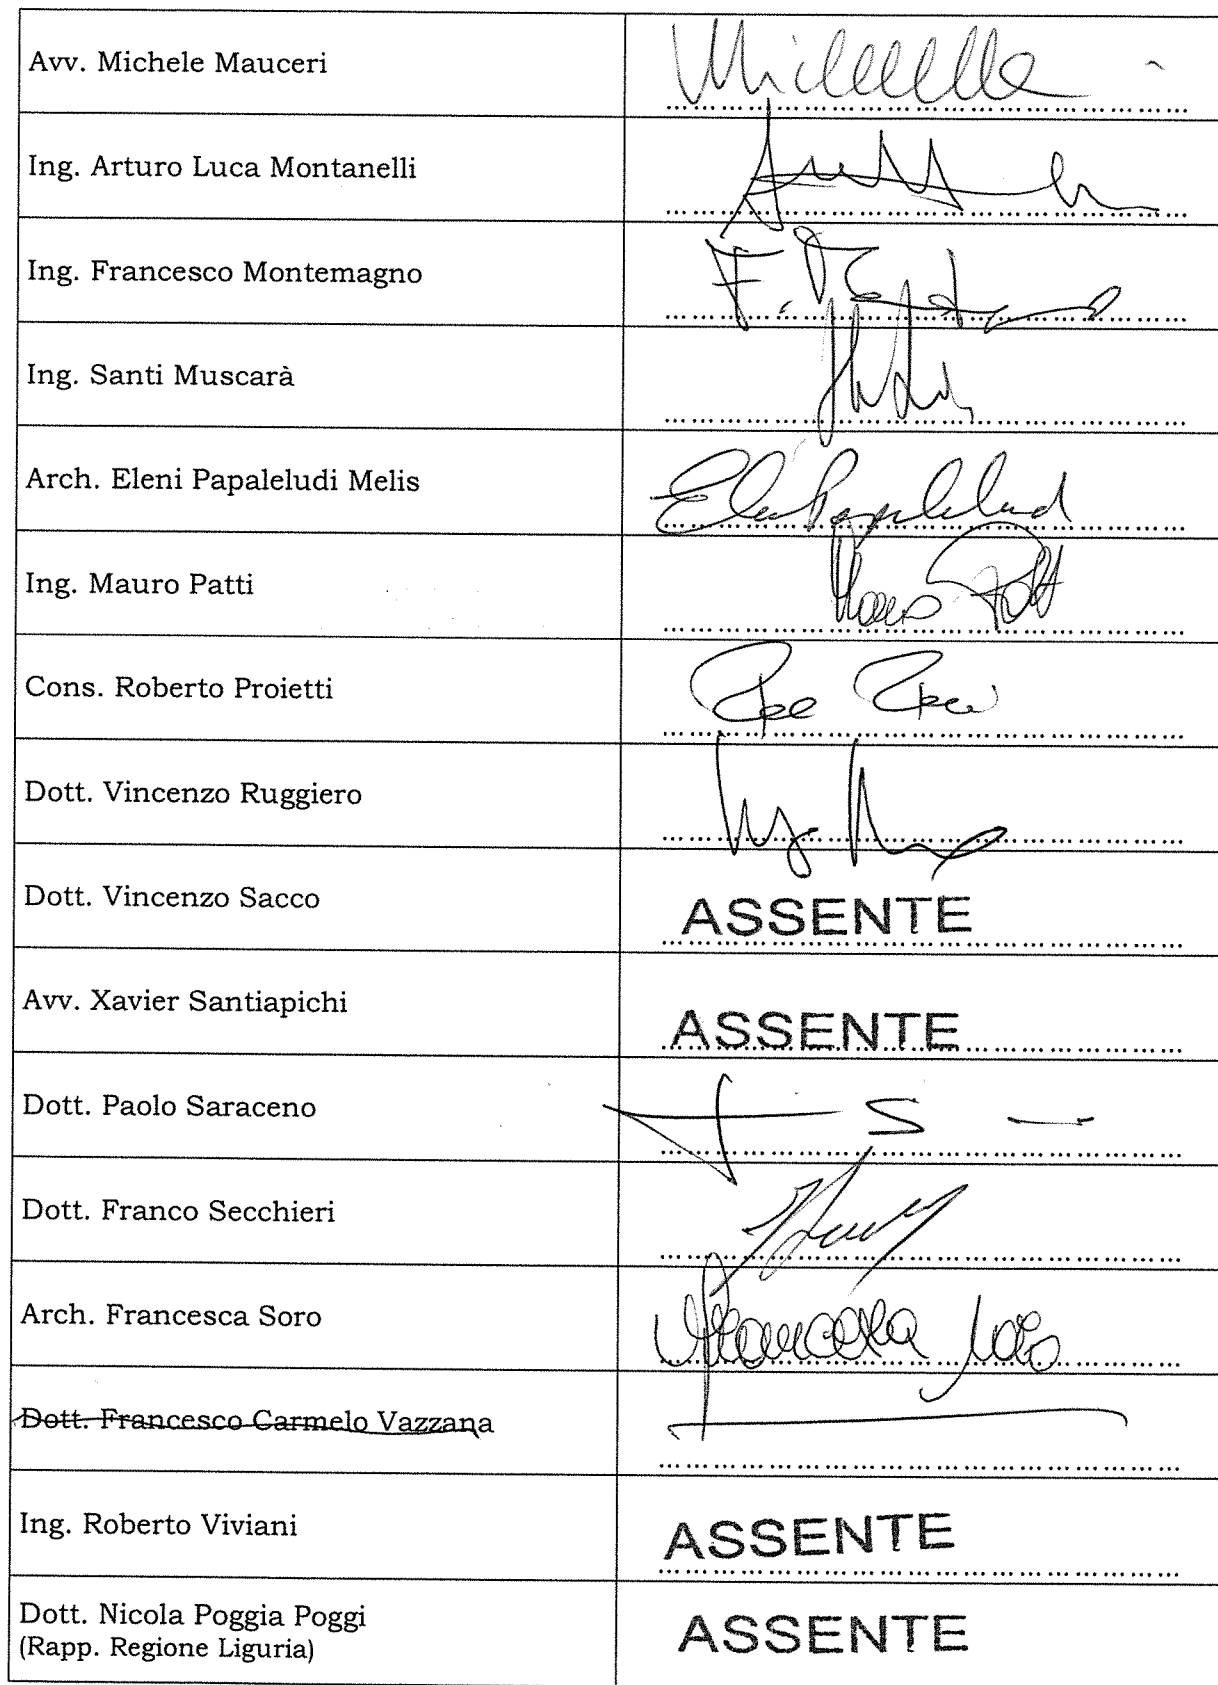 Avv. Michele Mauceri
Ing. Arturo Luca Montanelli
Ing. Francesco Montemagno
Ing. Santi Muscarà
Arch. Eleni Papaleludi Melis
Ing. Mauro Patti
Cons. Roberto Proietti
Dott. Vincenzo Ruggiero
Dott. Vincenzo Sacco ASSENTE
Avv. Xavier Santiapichi ASSENTE
Dott. Paolo Saraceno
Dott. Franco Secchieri
Arch. Francesca Soro Francesca Soro
Dott. Francesco Carmelo Vazzana
Ing. Roberto Viviani ASSENTE
Dott. Nicola Poggia Poggi ASSENTE
(Rapp. Regione Liguria)